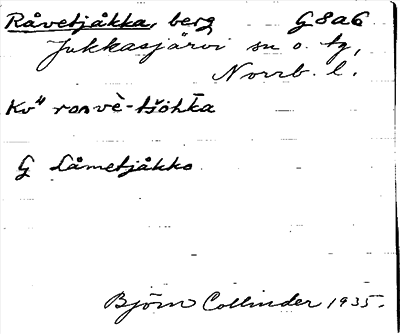 Råvetjåkka, berg G8a6
Jukkasjärvi sn o. tg,
Norrb. l.
Kv" roɒvè-tšöhka
G Låmetjåkko
Björn Collinder 1935.